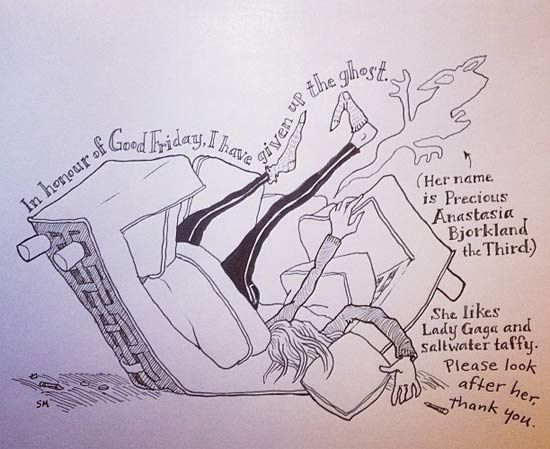 In honour of Good Friday, I have given up the ghost.
(Her name
is Precious
Anastasia
Bjorkland
the Third.)
She likes
Lady Gaga and
saltwater taffy.
Please look
after her,
thank you.
SM